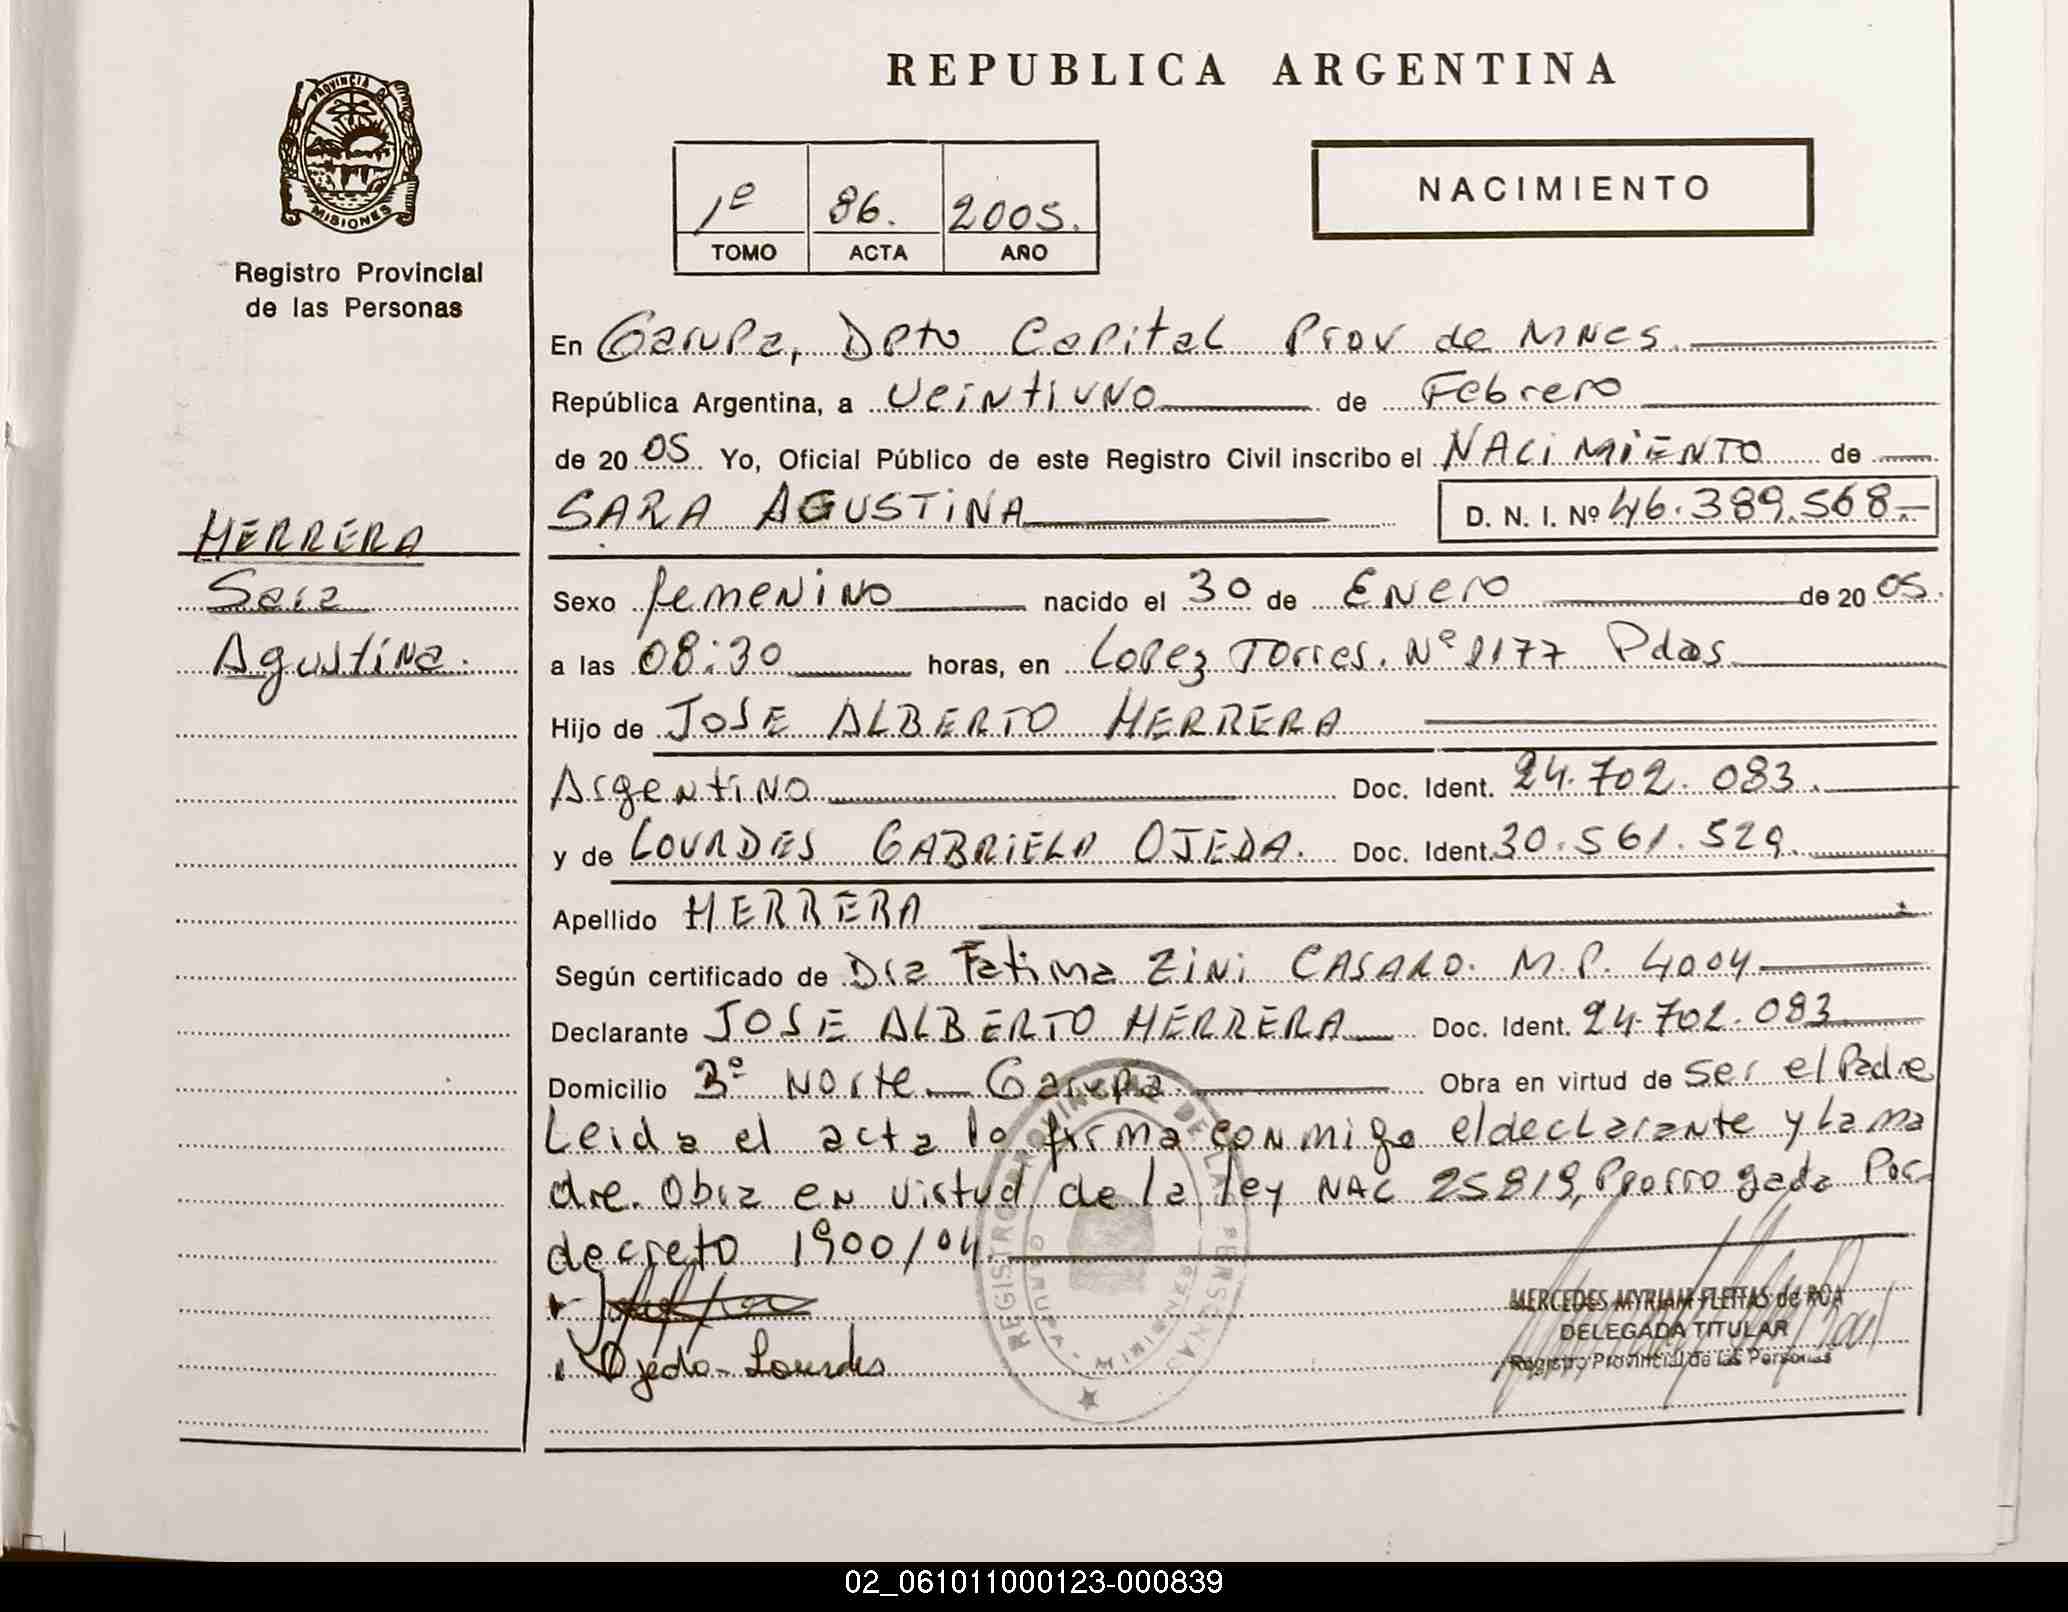 REPUBLICA ARGENTINA
PROVINCIA DE
MISIONES
Registro Provincial
de las Personas
1º 86. 2005.
TOMO ACTA AÑO
NACIMIENTO
En Garupa, Dpto Capital Prov de MNes.
República Argentina, a Veintiuno de Febrero
de 20 05 Yo, Oficial Público de este Registro Civil inscribo el NACIMIENTO de
SARA AGUSTINA D. N. I. Nº 46.389.568
HERRERA
Sara
Agustina.
Sexo femenino nacido el 30 de Enero de 20 05.
a las 08:30 horas, en Lopez Torres. Nº 1177 Pdas
Hijo de JOSE ALBERTO HERRERA
Argentino Doc. Ident. 24.702.083.
y de LOURDES GABRIELA OJEDA. Doc. Ident. 30.561.529.
Apellido HERRERA
Según certificado de Dra Fatima ZINI CASARO. M.P. 4004
Declarante JOSE ALBERTO HERRERA Doc. Ident. 24.702.083
Domicilio Bº Norte - Garupa Obra en virtud de ser el Padre
Leida el acta lo firma conmigo el declarante y la ma
dre. Obra en virtud de la ley NAC 25819, Prorrogada Por
decreto 1900/04.
Ojeda - Lourdes
REGISTRO PROVINCIAL DE LAS PERSONAS
MERCEDES MYRIAM FLEITAS de ROA
DELEGADA TITULAR
Registro Provincial de las Personas
02_061011000123-000839